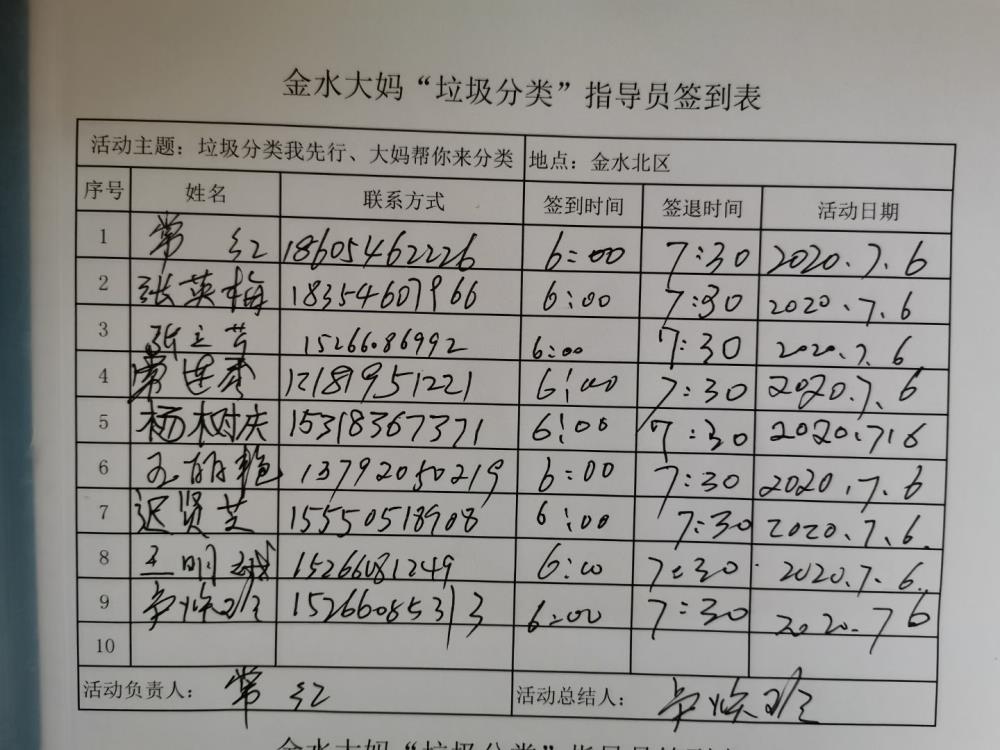 金水大妈“垃圾分类”指导员签到表
活动主题：垃圾分类我先行、大妈帮你来分类 地点：金水北区
序号 姓名 联系方式 签到时间 签退时间 活动日期
1 常红 18605462226 6:00 7:30 2020.7.6
2 张英梅 18354607966 6:00 7:30 2020.7.6
3 张立芹 15266086992 6:00 7:30 2020.7.6
4 常连香 6:00 7:30 2020.7.6
5 杨树庆 15318367371 6:00 7:30 2020.7.6
6 13792050219 6:00 7:30 2020.7.6
7 迟贤芝 15550518908 6:00 7:30 2020.7.6.
8 王明 15266081249 6:00 7:30 2020.7.6.
9 15266085313 6:00 7:30 2020.7.6
10
活动负责人：常红 活动总结人：
金水大妈“垃圾分类”指导员签到表